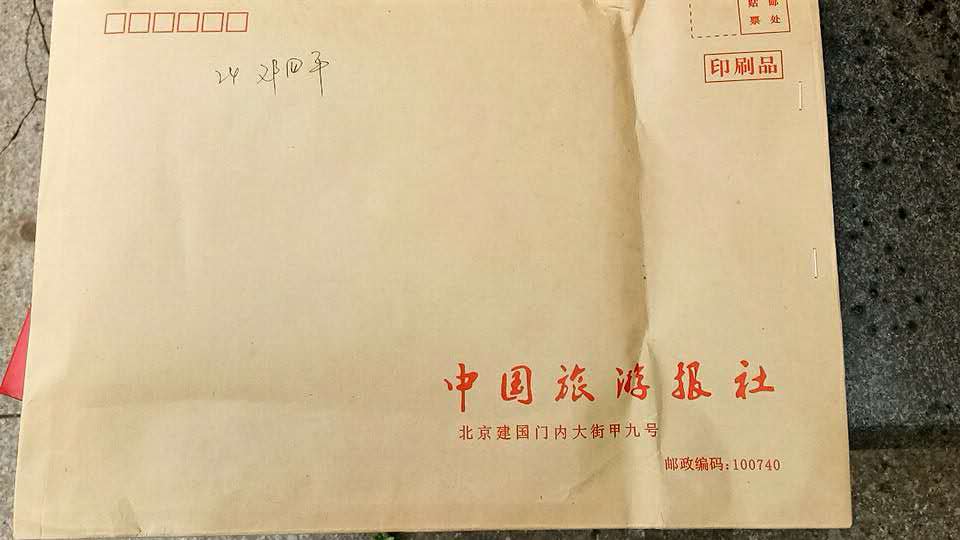 贴邮
票处
印刷品
24 邓四平
中国旅游报社
北京建国门内大街甲九号
邮政编码:100740